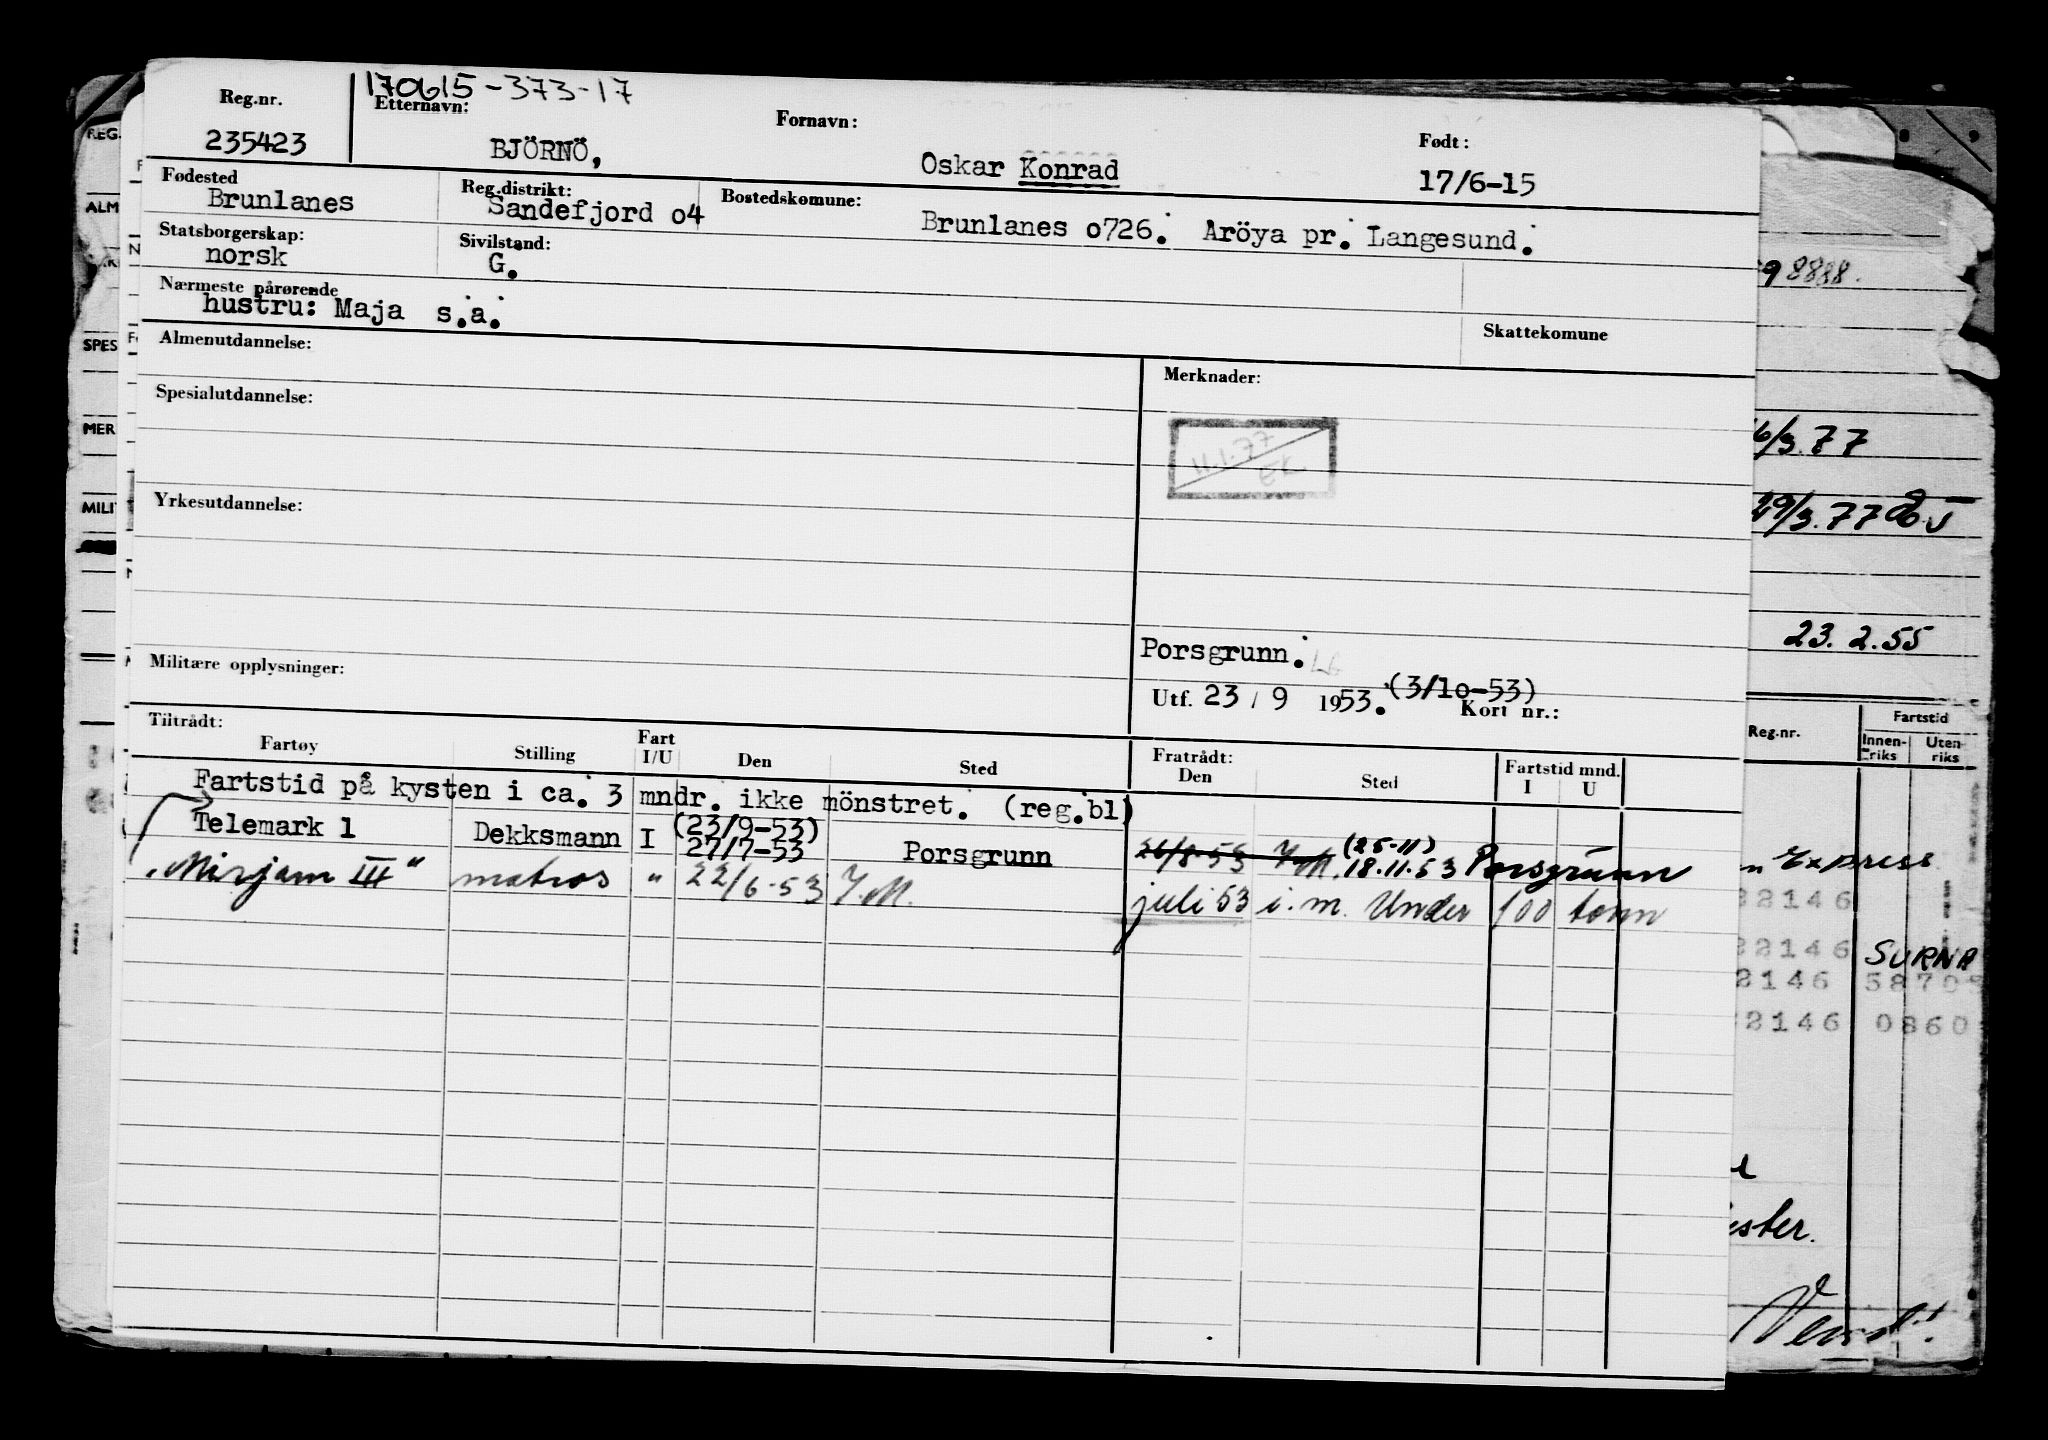 170615-373-17
Reg.nr. Etternavn: Fornavn: Født:
235423 BJÖRNÖ, Oskar Konrad 17/6-15
Fødested Reg.distrikt: Bostedskomune:
Brunlanes Sandefjord o4 Brunlanes o726. Aröya pr. Langesund.
Statsborgerskap: Sivilstand:
norsk G.
Nærmeste pårørende
hustru: Maja s.a.
Skattekomune
Almenutdannelse: Merknader:
Spesialutdannelse:
11.1.77
EK
Yrkesutdannelse:
Porsgrunn.
Militære opplysninger:
Utf. 23 / 9 1953. (3/1o-53) Kort nr.:
Tiltrådt: Fratrådt:
Fartøy Stilling Fart I/U Den Sted Den Sted Fartstid mnd. I U
Fartstid på kysten i ca. 3 mndr. ikke mönstret. (reg.bl)
Telemark 1 Dekksmann I (23/9-53) 27/7-53 Porsgrunn 26/8-53 I.M. (25-11) 18.11.53 Porsgrunn
"Mirjam III" matros " 22/6-53 I.M. juli 53 i.m. Under 100 tonn
REG.
ALM
SPES
MER
MILI
9 8888.
6/3.77
29/3.77
23.2.55
Reg.nr. Fartstid
Innenriks Utenriks
Express
22146
22146 SURNA
2146 58705
22146 0860